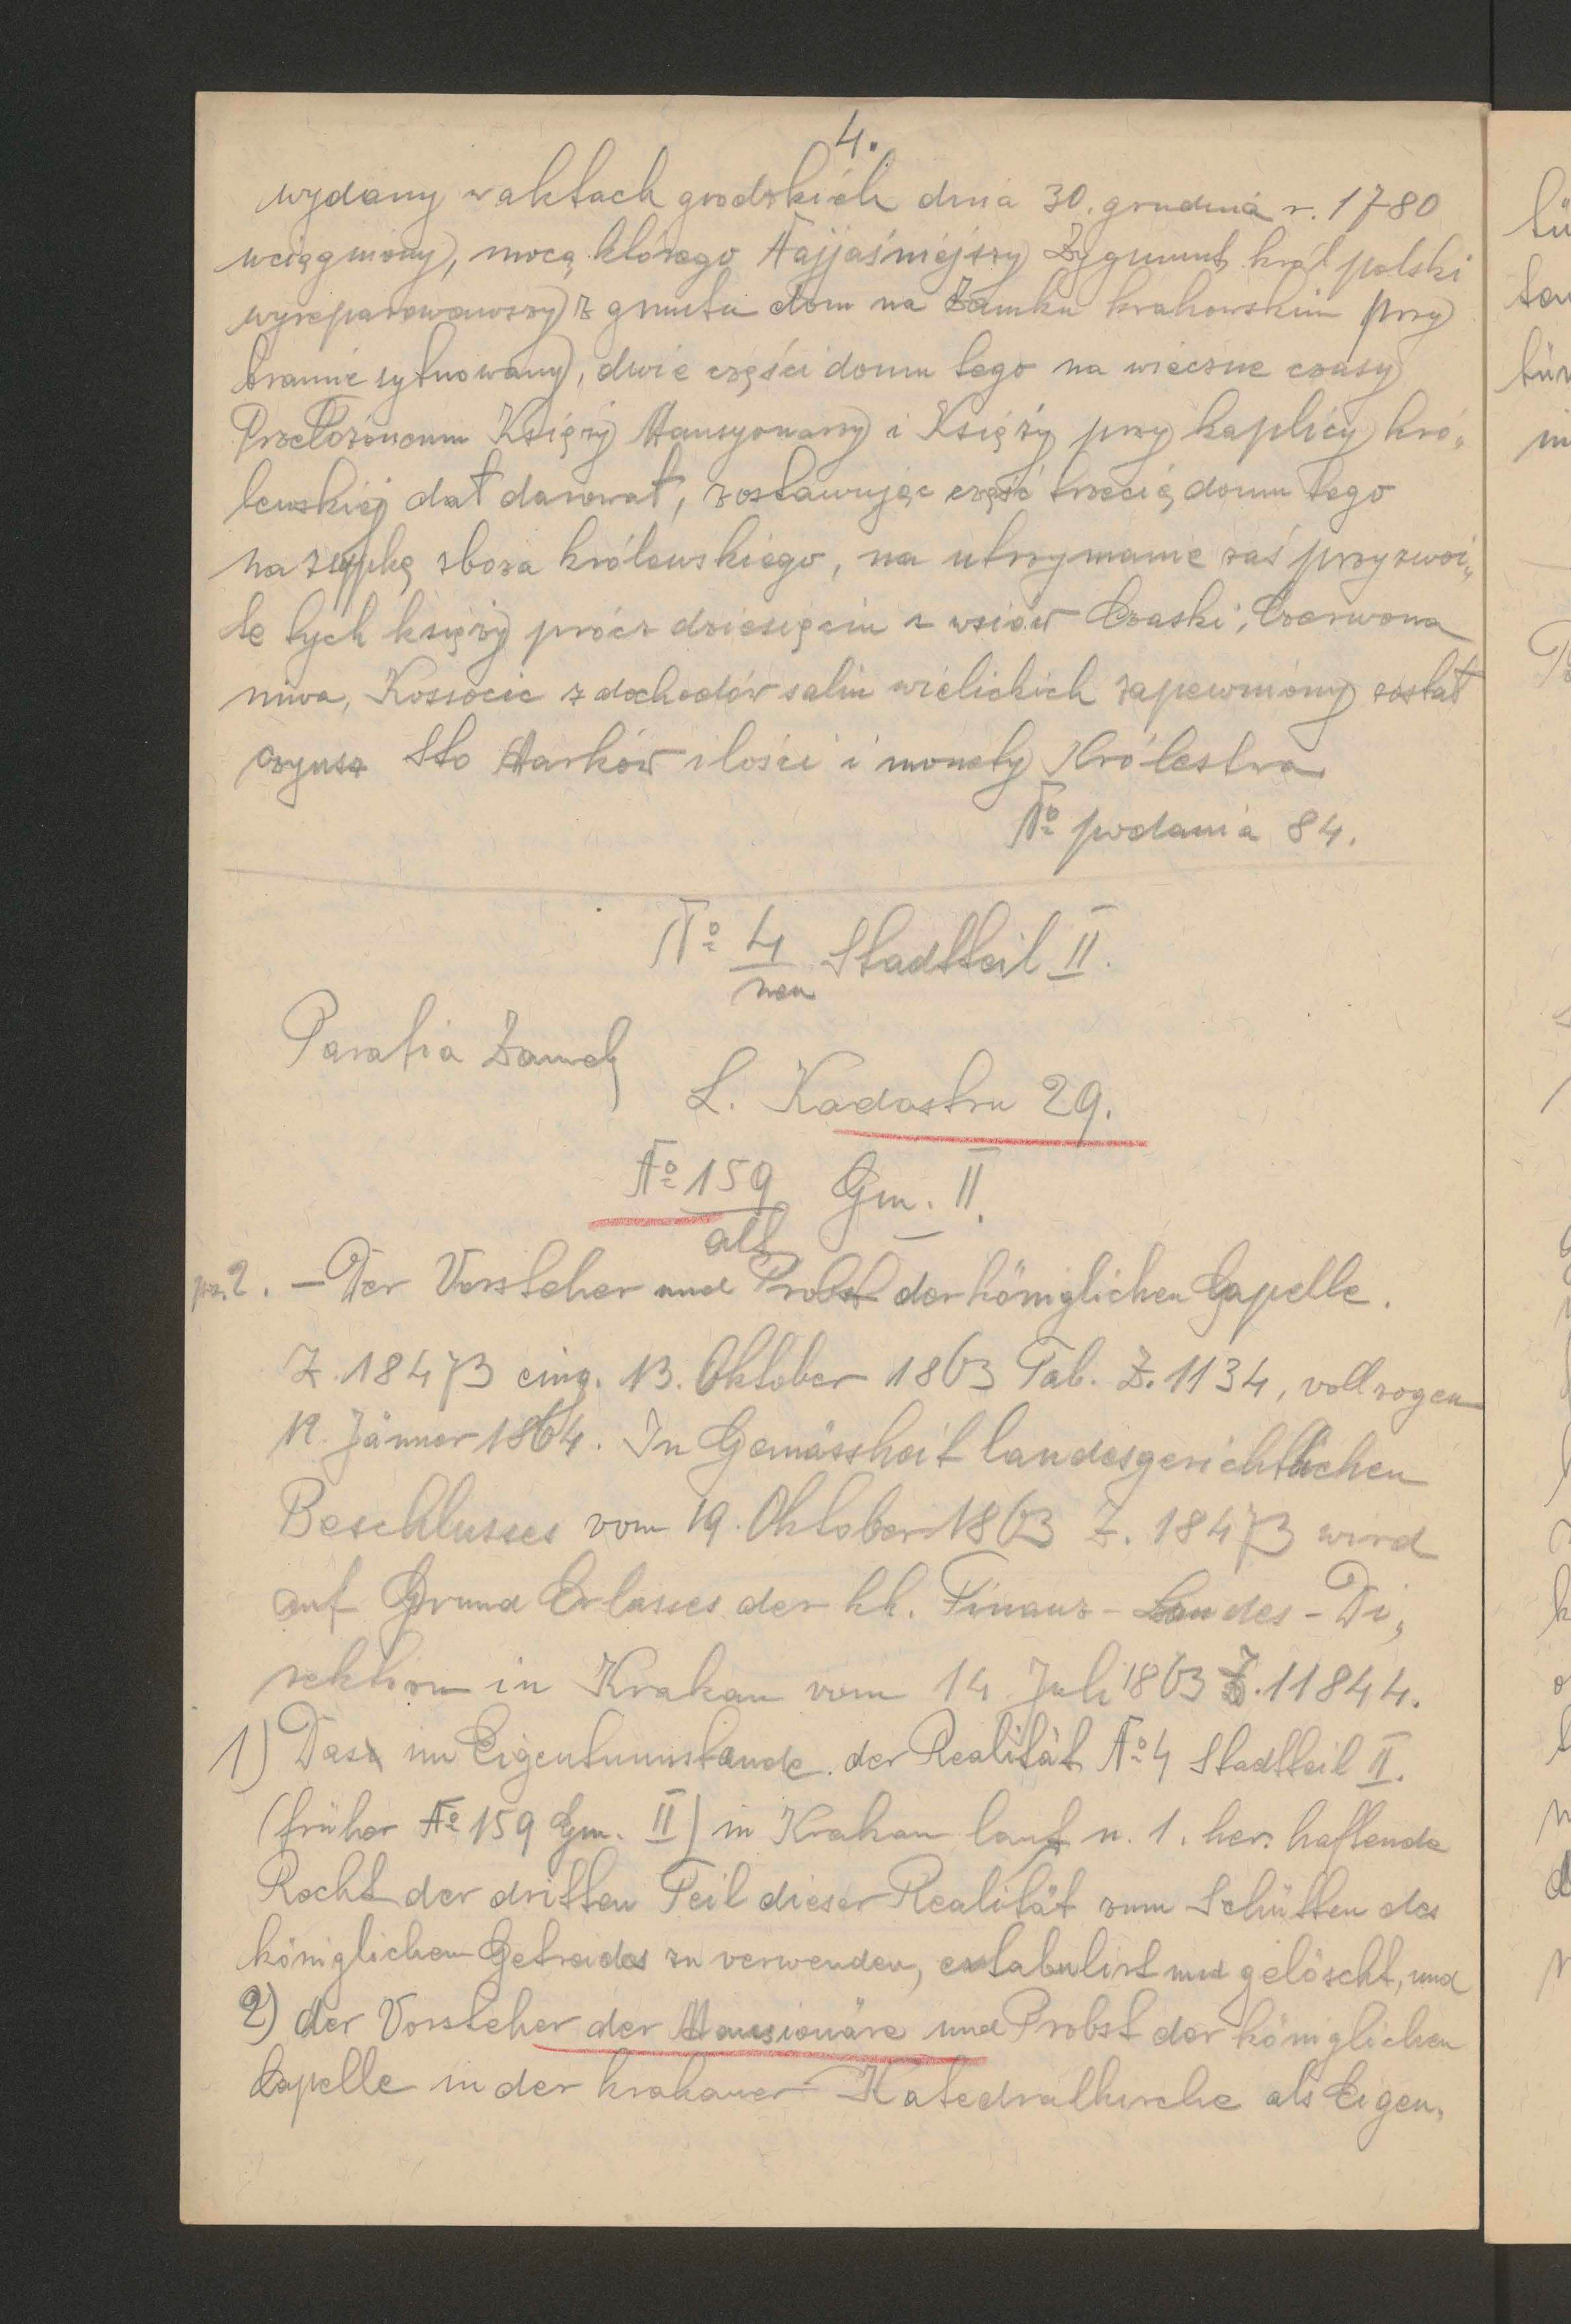 4.
wydany w aktach grodzkich dnia 30. grudnia r. 1780
wciągniony, mocą którego Najjaśniejszy Zygmunt król polski
wyreparowawszy z gruntu dom na Zamku krakowskim przy
bramie sytuowany, dwie części domu tego na wieczne czasy
Przełożonemu Księży Mansyonarzy i Księży przy kaplicy kró„
lewskiej dał darował, zostawując część trzecią domu tego
na zsypkę zboża królewskiego, na utrzymanie zaś przyzwoi„
te tych księży prócz dziesięcin z wsiów Czaski, Czerwona
niwa, Kossocic z dochodów salin wielickich zapewniony został
czynsz Sto Marków ilości i monety Królestwa
No podania 84.
No 4 Stadtteil II.
neu
Parafia Zamek
L. Kadastru 29.
No 159 Gm. II.
alt
pr. 2. – Der Vorsteher und Probst der königlichen Capelle.
Z. 18473 eing. 13. Oktober 1863 Tab. Z. 1134, vollzogen
12. Jänner 1864. In Gemässheit landesgerichtlichen
Beschlusses vom 19. Oktober 1863 Z. 18473 wird
auf Grund Erlasses der kk. Finanz-Landes-Di„
rektion in Krakau vom 14 Juli 1863 Z. 11844.
1) Das im Eigentumsstande der Realität No 4 Stadtteil II.
(früher No 159 Gm. II) in Krakau laut n. 1. her. haftende
Recht der dritten Teil dieser Realität zum Schütten des
königlichen Getreides zu verwenden, extabulirt und gelöscht, und
2) der Vorsteher der Mansionäre und Probst der königlichen
Capelle in der krakauer Katedralkirche als Eigen„